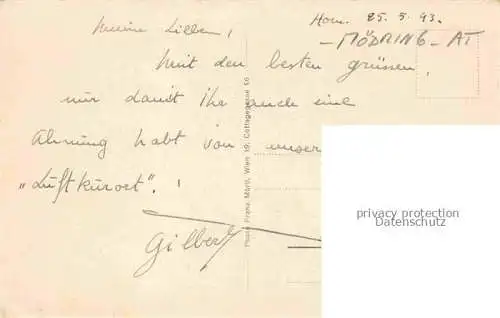 meine Lieben!
Horn. 25.5.43.
- MÖDRING - AT
Mit den besten grüssen,
nur damit ihr auch eine
Ahnung habt von unser
"Luftkurort".!
Gilbert
Photo Franz Mörtl, Wien 19, Cottagegasse 56
privacy protection
Datenschutz